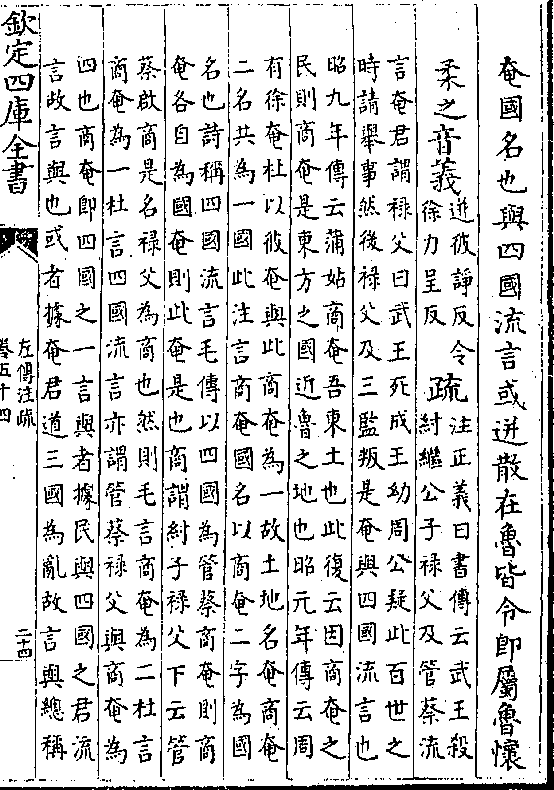 奄國名也與四國流言或迸散在魯皆令即屬魯懷
柔之音義
迸彼諍反令
徐力呈反
疏
注正義曰書傳云武王殺
紂繼公子祿父及管蔡流
言奄君謂祿父曰武王死成王幼周公疑此百世之
時請舉事然後祿父及三監叛是奄與四國流言也
昭九年傳云蒲姑商奄吾東土也此復云因商奄之
民則商奄是東方之國近魯之地也昭元年傳云周
有徐奄杜以彼奄與此商奄為一故土地名奄商奄
二名共為一國此注言商奄國名以商奄二字為國
名也詩稱四國流言毛傳以四國為管蔡商奄則商
奄各自為國奄則此奄是也商謂紂子祿父下云管
蔡啟商是名祿父為商也然則毛言商奄為二杜言
商奄為一杜言四國流言亦謂管蔡祿父與商奄為
四也商奄即四國之一言與者據民與四國之君流
言故言與也或者據奄君道三國為亂故言與總稱
欽定四庫全書
左傳注疏
卷五十四
二十四